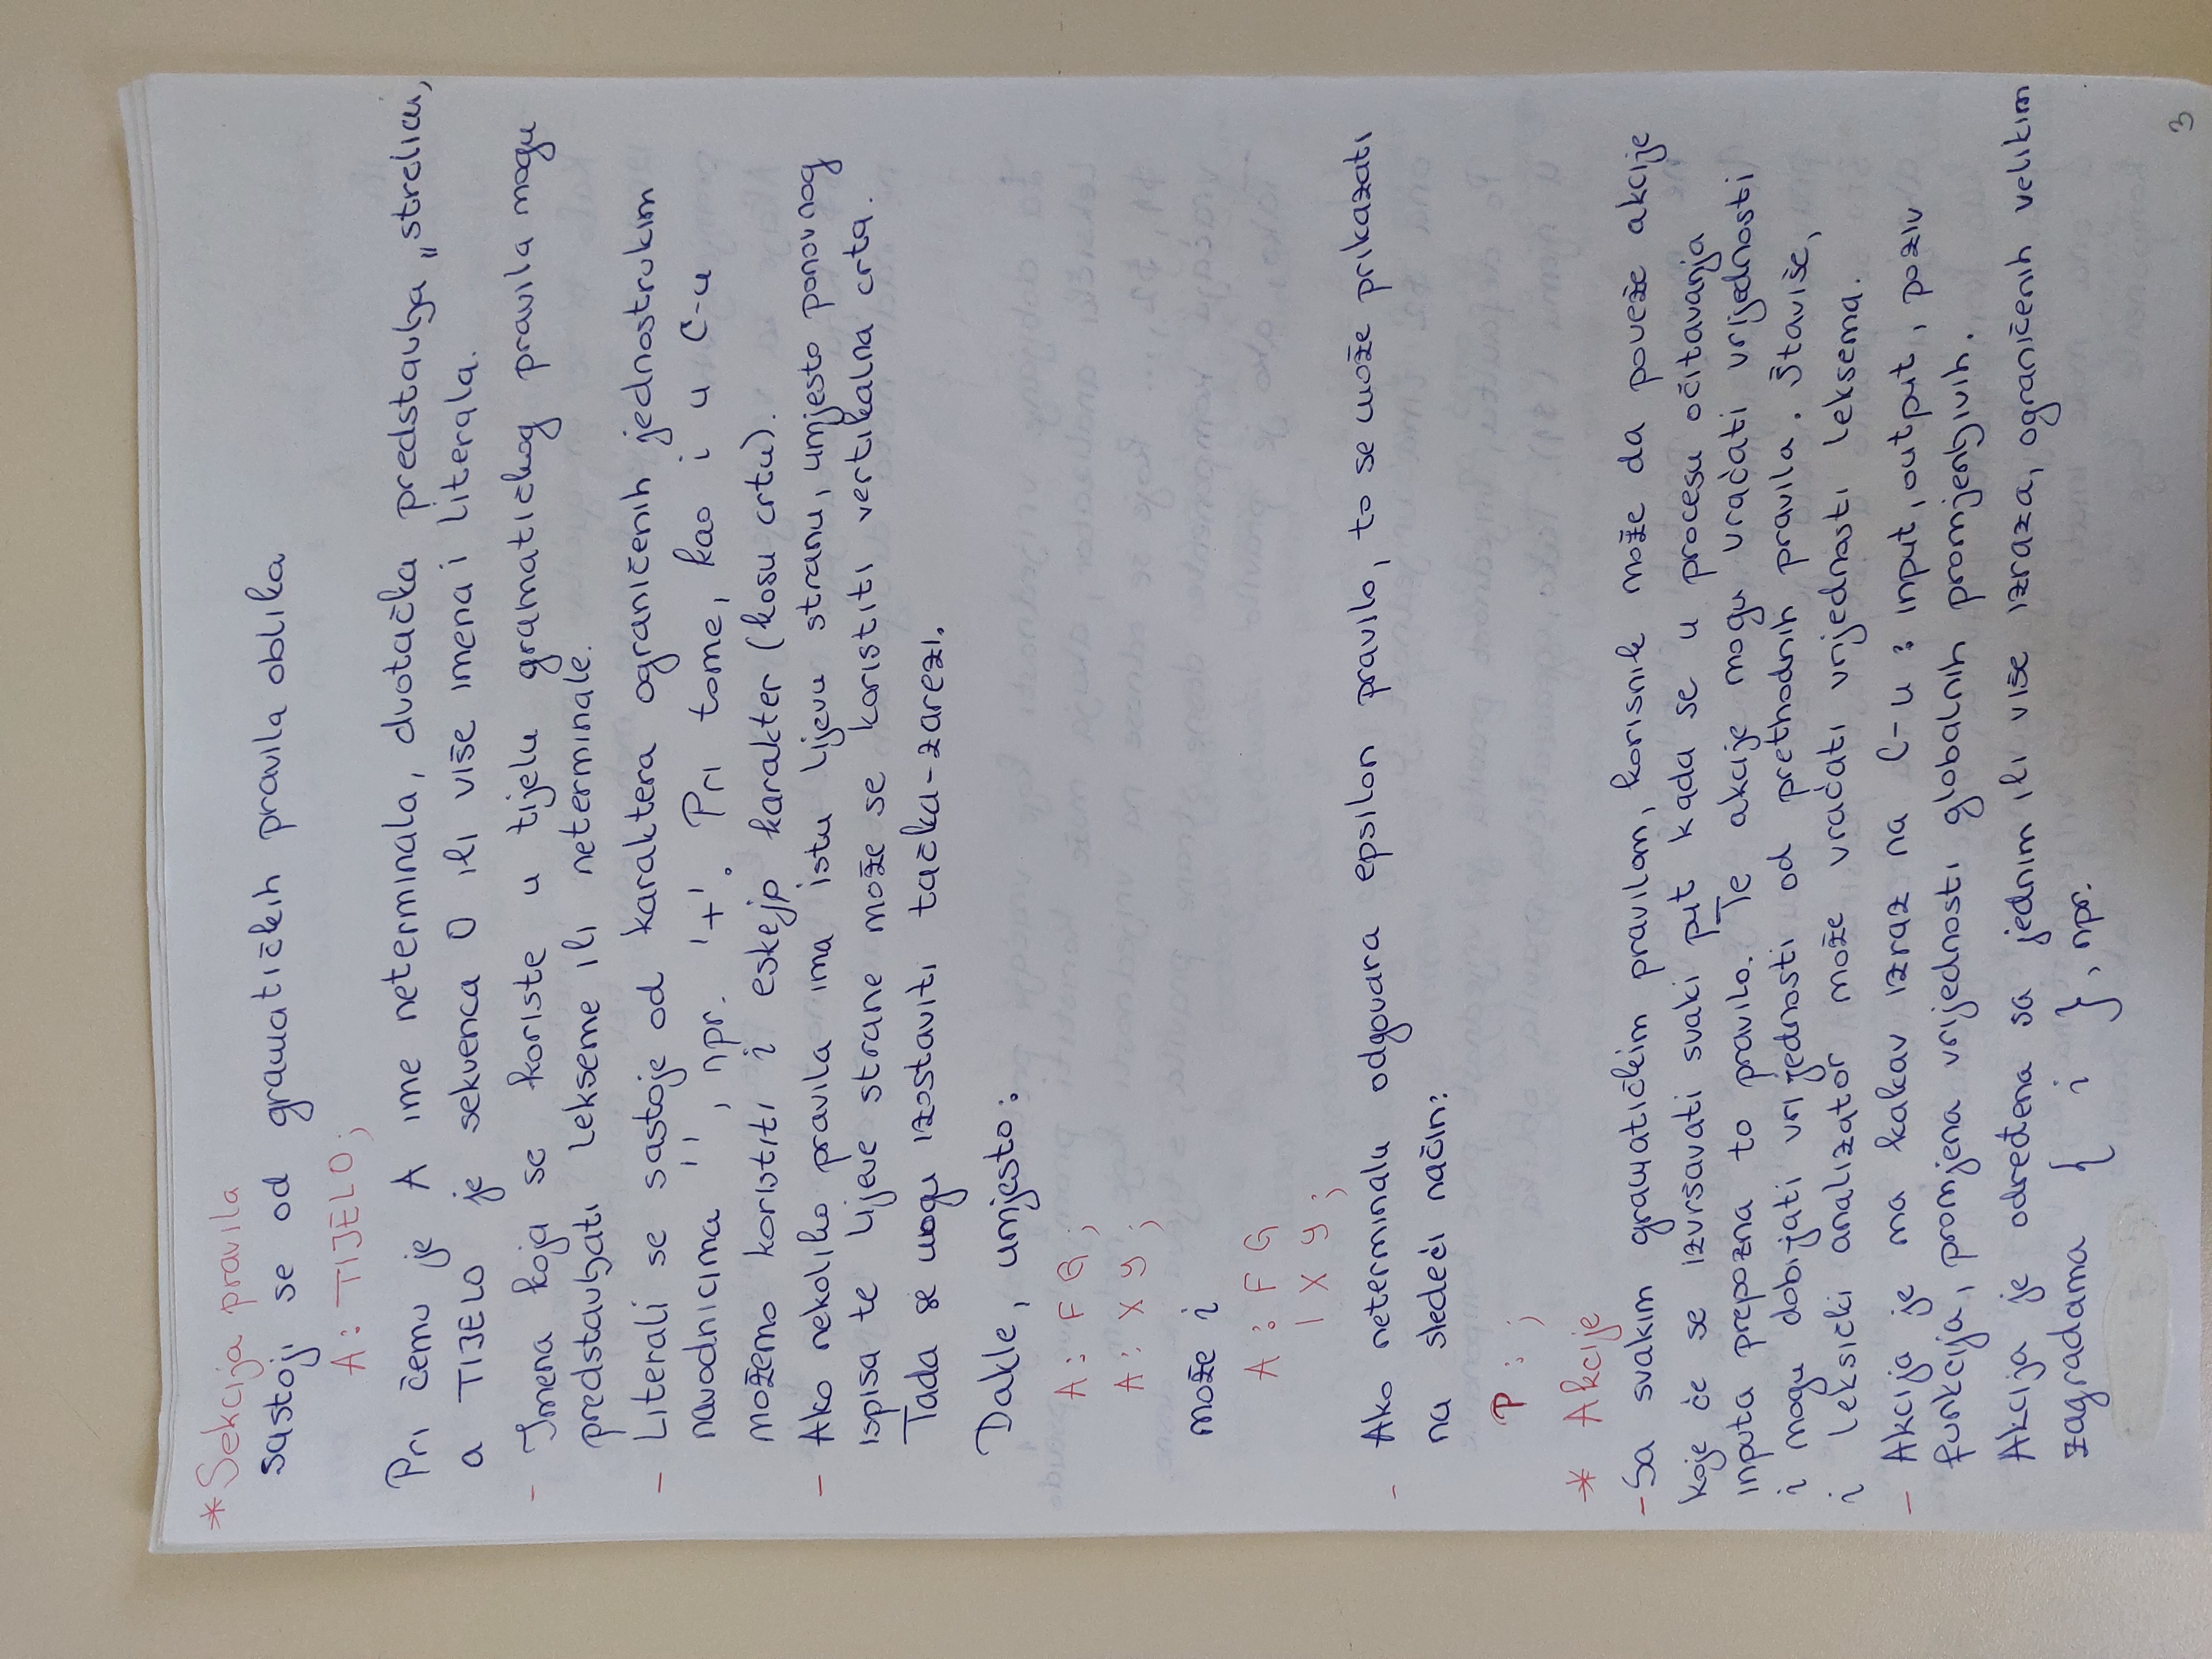 * Sekcija pravila
sastoji se od gramatičkih pravila oblika
A: TIJELO;
Pri čemu je A ime neterminala, dvotačka predstavlja „strelicu,
a TIJELO je sekvenca 0 ili više imena i literala.
- Imena koja se koriste u tijelu gramatičkog pravila mogu
predstavljati lekseme ili neterminale.
- Literali se sastoje od karaktera ograničenih jednostrukim
navodnicima ' ', npr. '+'. Pri tome, kao i u C-u
možemo koristiti i eskejp karakter (kosu crtu).
- Ako nekoliko pravila ima istu lijevu stranu, umjesto ponovnog
ispisa te lijeve strane može se koristiti vertikalna crta.
Tada se mogu izostaviti tačka-zarezi.
Dakle, umjesto:
A: F G;
A: X Y;
može i
A: F G
| X Y;
- Ako neterminalu odgovara epsilon pravilo, to se može prikazati
na sledeći način:
P: ;
* Akcije
- Sa svakim gramatičkim pravilom, korisnik može da poveže akcije
koje će se izvršavati svaki put kada se u procesu očitavanja
inputa prepozna to pravilo. Te akcije mogu vraćati vrijednosti
i mogu dobijati vrijednosti od prethodnih pravila. Štaviše,
i leksički analizator može vraćati vrijednosti leksema.
- Akcija je ma kakav izraz na C-u: input, output, poziv
funkcija, promjena vrijednosti globalnih promjenljivih.
Akcija je određena sa jednim ili više izraza, ograničenih velikim
zagradama { i }, npr.
3